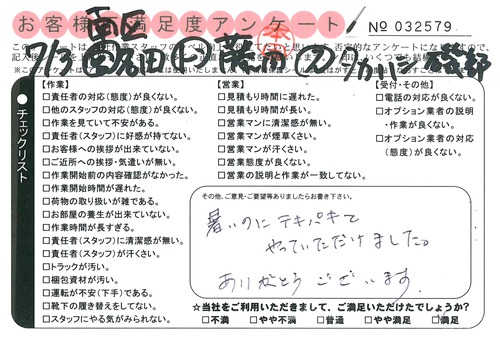 お客様満足度アンケート
№ 032579
チェックリスト
【作業】
□責任者の対応(態度)が良くない。
□他のスタッフの対応(態度)が良くない。
□作業を見ていて不安がある。
□責任者(スタッフ)に好感が持てない。
□お客様への挨拶が出来ていない。
□ご近所への挨拶・気遣いが無い。
□作業開始前の内容確認がなかった。
□作業開始時間が遅れた。
□荷物の取り扱いが雑である。
□お部屋の養生が出来ていない。
□作業時間が長すぎる。
□責任者(スタッフ)に清潔感が無い。
□責任者(スタッフ)が汗くさい。
□トラックが汚い。
□梱包資材が汚い。
□運転が不安(下手)である。
□靴下の履き替えをしてない。
□スタッフにやる気がみられない。
【営業】
□見積もり時間に遅れた。
□見積もり時間が長い。
□営業マンに清潔感が無い。
□営業マンが煙草くさい。
□営業マンが汗くさい。
□営業態度が良くない。
□営業の説明と作業が一致してない。
【受付・その他】
□電話の対応が良くない。
□オプション業者の説明
・作業が良くない。
□オプション業者の対応
(態度)が良くない。
その他、ご意見・ご要望等ありましたらお書き下さい。
暑いのにテキパキと
やっていただけました。
ありがとうございます。
☆当社をご利用いただきまして、ご満足いただけたでしょうか?
□不満 □やや不満 □普通 □やや満足 □満足